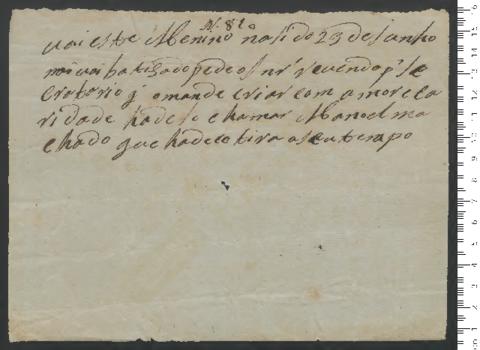 Nº 820
vai este Menino nasido 23 de Junho
não vai batizado pede os nrº revendo pª Se
cretario q̃ o mande criar com amor e ca
ridade hade se chamar Manoel ma
chado que hade se tirar a seu tempo